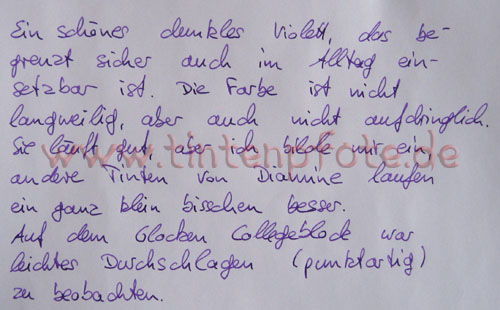 Ein schönes dunkles Violett, das be-
grenzt sicher auch im Alltag ein-
setzbar ist. Die Farbe ist nicht
langweilig, aber auch nicht aufdringlich.
Sie läuft gut, aber ich bilde mir ein,
www.tintenpfote.de
andere Tinten von Diamine laufen
ein ganz klein bisschen besser.
Auf dem Clocken Collegeblock war
leichtes Durchschlagen (punktartig)
zu beobachten.